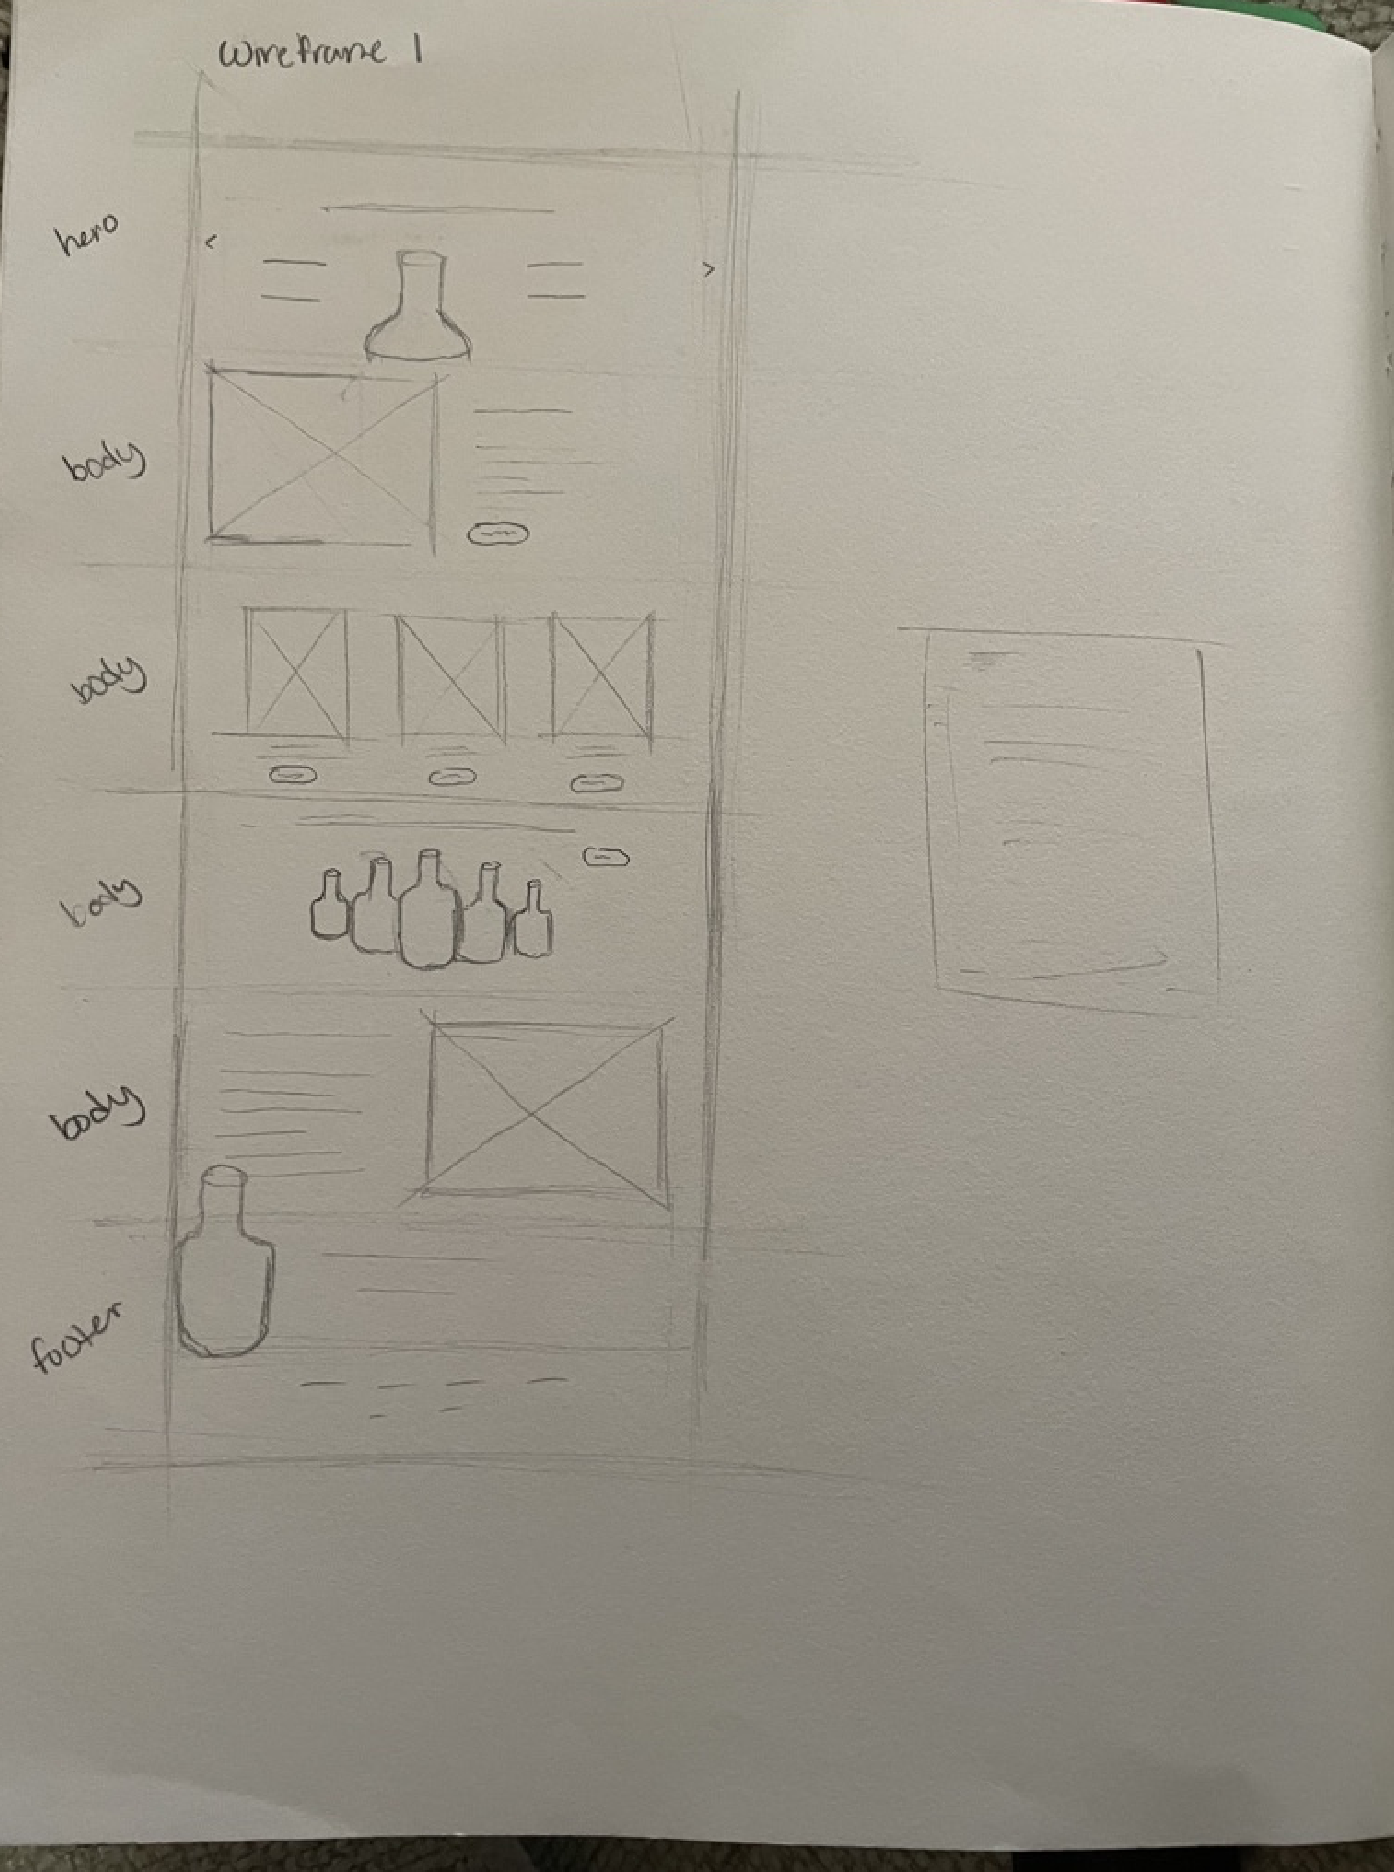 Wireframe 1
hero
<
>
body
body
body
body
footer